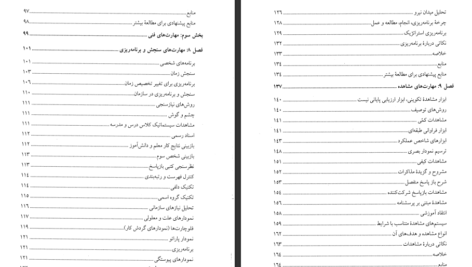 منابع ... ۹۷
منابع پیشنهادی برای مطالعهٔ بیشتر ... ۹۸
بخش سوم: مهارت‌های فنی ... ۹۹
فصل ۸: مهارت‌های سنجش و برنامه‌ریزی ... ۱۰۱
برنامه‌های شخصی ... ۱۰۱
سنجش زمان ... ۱۰۳
برنامه‌ریزی برای تغییر تخصیص زمان ... ۱۰۶
سنجش و برنامه‌ریزی در سازمان ... ۱۱۰
روش‌های نیازسنجی ... ۱۱۱
چشم و گوش ... ۱۱۱
مشاهدات سیستماتیک کلاس درس و مدرسه ... ۱۱۱
اسناد رسمی ... ۱۱۲
بازبینی نتایج کار معلم و دانش‌آموز ... ۱۱۲
بازبینی شخص سوم ... ۱۱۳
نظرسنجی کتبی بازپاسخ ... ۱۱۳
کنترل فهرست و رتبه‌بندی ... ۱۱۴
تکنیک دلفی ... ۱۱۴
تکنیک گروه اسمی ... ۱۱۵
تحلیل نیازهای سازمانی ... ۱۱۶
نمودارهای علت و معلولی ... ۱۱۷
فلوچارت‌ها (نمودارهای گردش کار) ... ۱۱۹
نمودار پاراتو ... ۱۲۱
برنامه‌ریزی ... ۱۲۱
نمودارهای پیوستگی
تحلیل میدان نیرو ... ۱۲۶
چرخهٔ برنامه‌ریزی، انجام، مطالعه و عمل ... ۱۲۸
برنامه‌ریزی استراتژیک ... ۱۲۹
نکاتی دربارهٔ برنامه‌ریزی ... ۱۳۲
خلاصه ... ۱۳۳
منابع ... ۱۳۴
منابع پیشنهادی برای مطالعهٔ بیشتر ... ۱۳۴
فصل ۹: مهارت‌های مشاهده ... ۱۳۷
ابزار مشاهدهٔ تکوینی، ابزار ارزیابی پایانی نیست ... ۱۴۰
روش‌های توصیف ... ۱۴۰
مشاهدات کمّی ... ۱۴۱
ابزار فراوانی طبقه‌ای ... ۱۴۱
ابزارهای شاخص عملکرد ... ۱۴۳
ترسیم نمودار بصری ... ۱۴۵
مشاهدات کیفی ... ۱۵۱
مشروح و گزیدهٔ مذاکرات ... ۱۵۲
شرح باز پاسخ منفصل ... ۱۵۳
مشاهدات بازپاسخ شرکت‌کننده ... ۱۵۵
مشاهدهٔ مبتنی بر پرسشنامه ... ۱۵۶
انتقاد آموزشی ... ۱۵۸
سیستم‌های مشاهدهٔ متناسب با شرایط ... ۱۵۹
انواع مشاهده و هدف‌های آن ... ۱۶۲
نکاتی دربارهٔ مشاهدات ... ۱۶۳
خلاصه ... ۱۶۴
منابع ... ۱۶۴